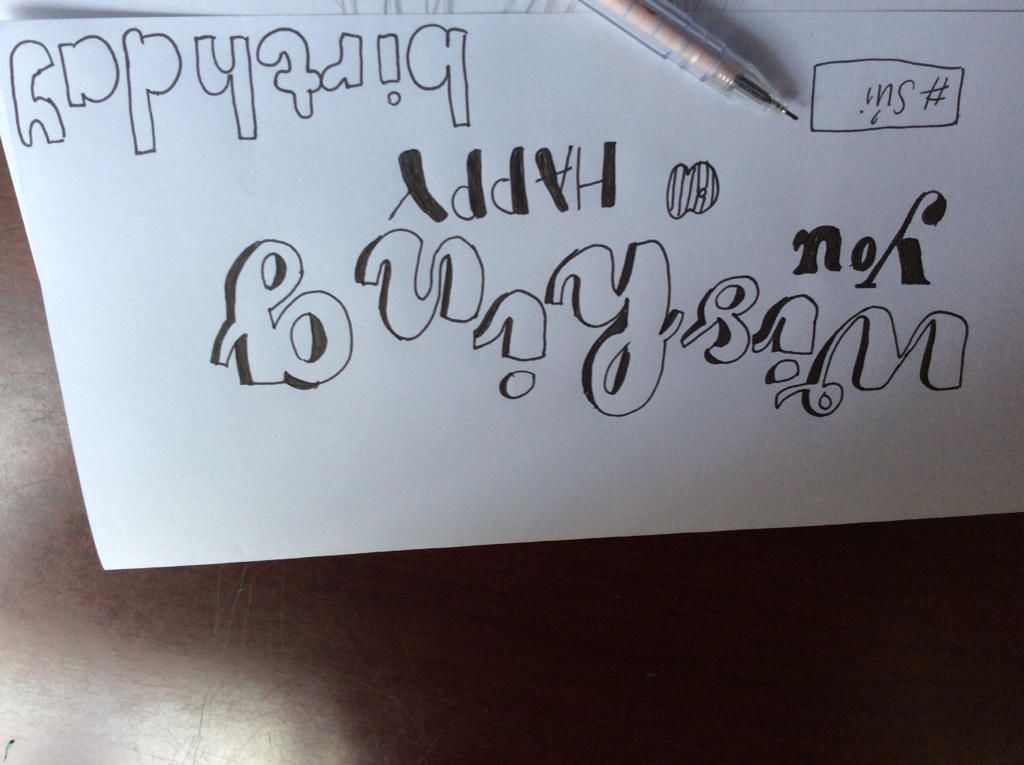 Wishing
you
a HAPPY
birthday
#Sủi